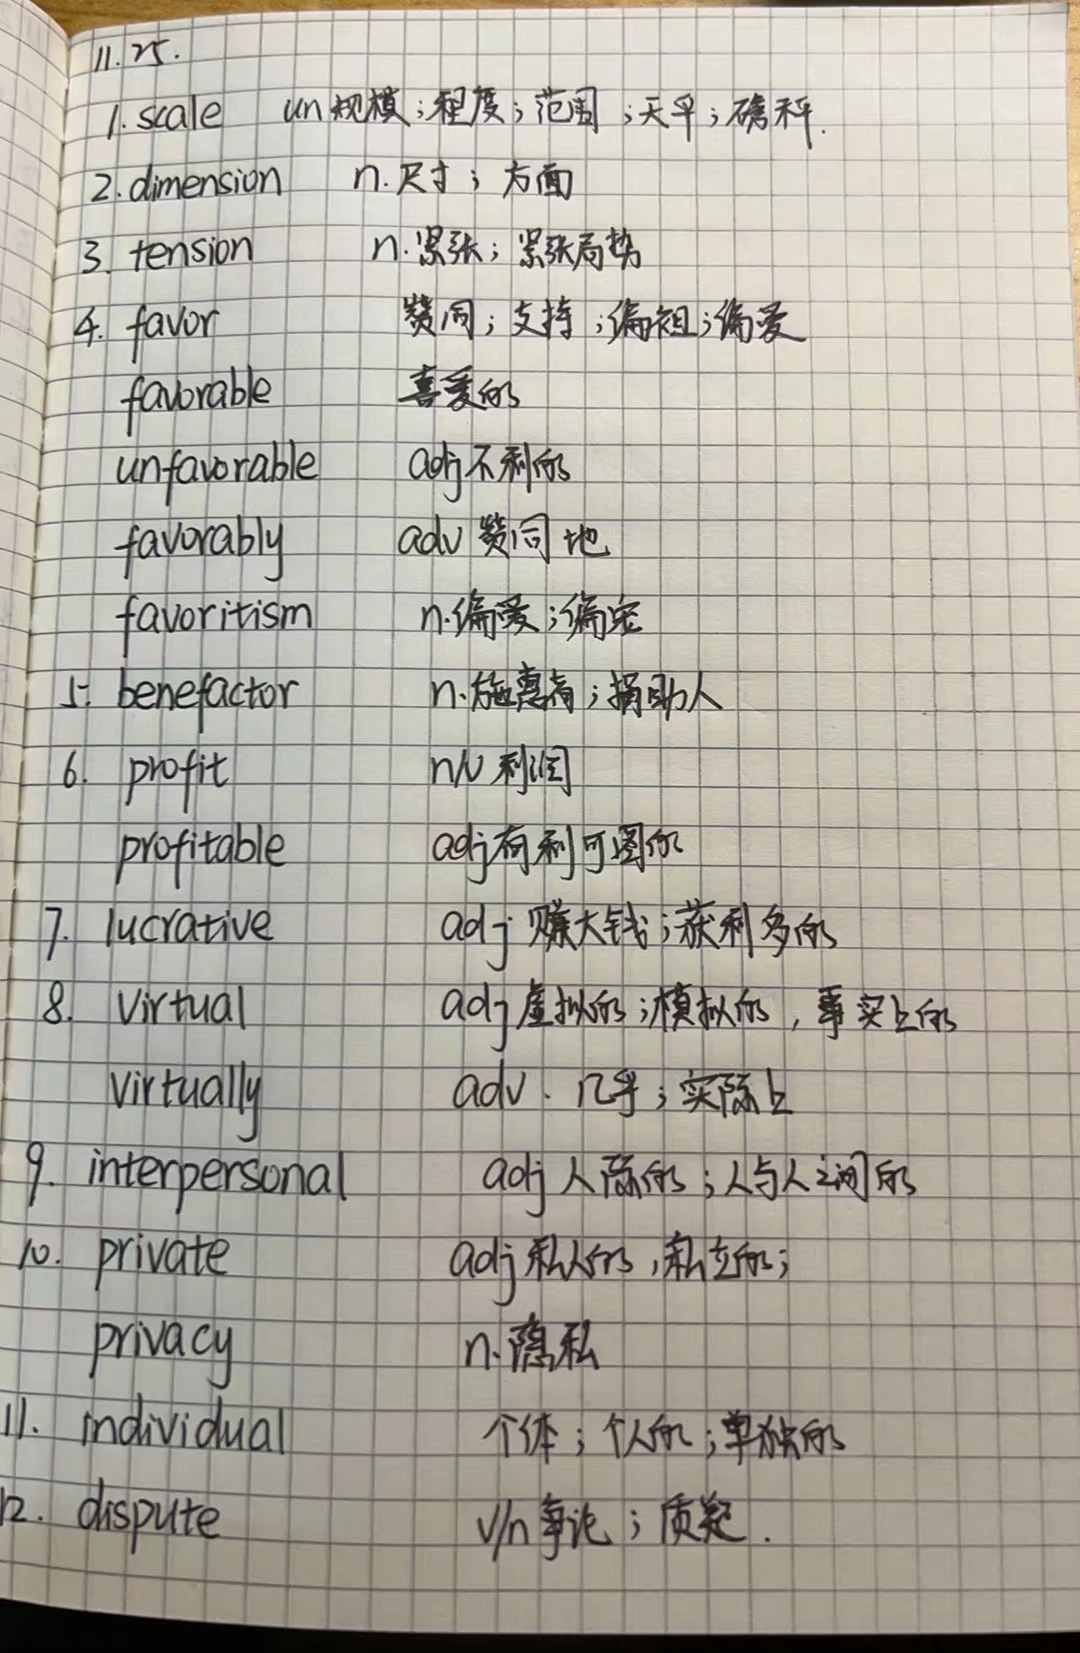 11.25.
1. scale un 规模;程度;范围;天平;磅秤.
2. dimension n.尺寸;方面
3. tension n.紧张;紧张局势
4. favor 赞同;支持;偏袒;偏爱
favorable 喜爱的
unfavorable adj 不利的
favorably adv 赞同地
favoritism n.偏爱;偏宠
5. benefactor n.施惠者;捐助人
6. profit n/v 利润
profitable adj 有利可图的
7. lucrative adj 赚大钱;获利多的
8. virtual adj 虚拟的;模拟的,事实上的
virtually adv. 几乎;实际上
9. interpersonal adj 人际的;人与人之间的
10. private adj 私人的,私立的;
privacy n.隐私
11. individual 个体;个人的;单独的
12. dispute v/n 争论;质疑.